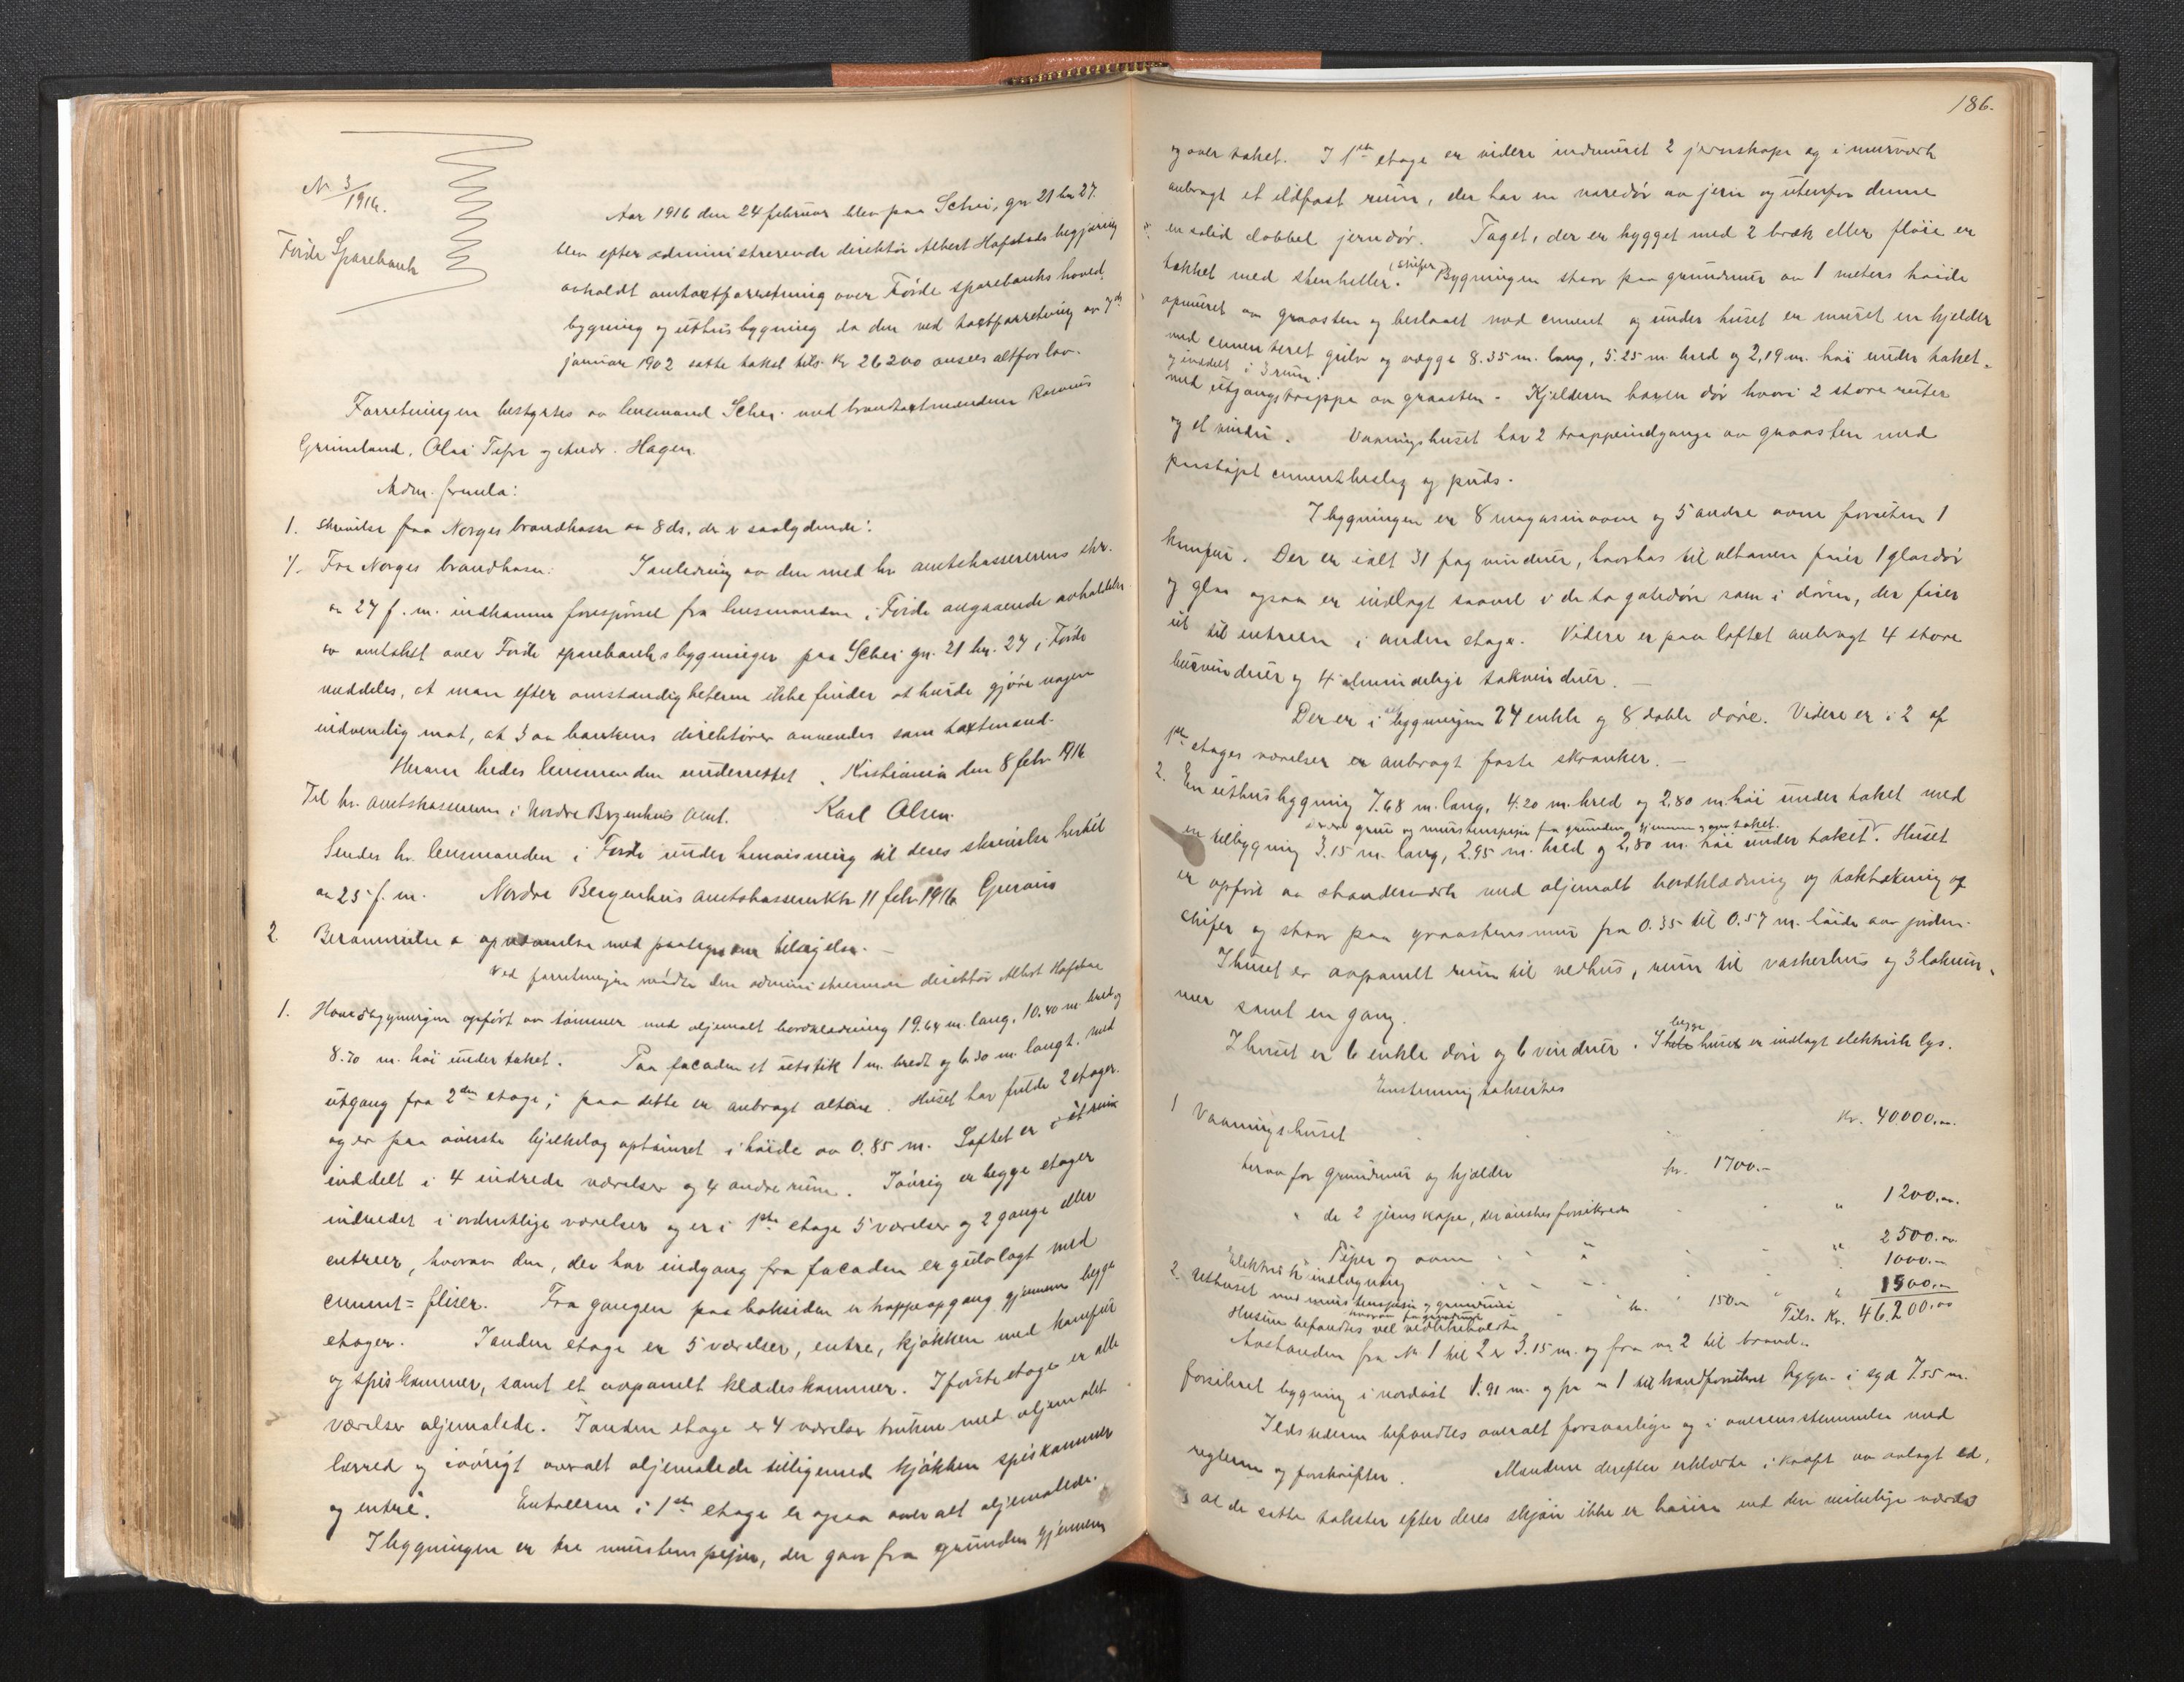 186.
N. 3/1916.
Førde Sparebank
Aar 1916 den 24 februar blev paa Schei, gn 21 bn 27.
blev efter administrerende direktør Albert Hafstads begjæring
avholdt omtaxtforretning over Førde sparebanks hoved
bygning og uthusbygning da den ved taxtforretning av 7de
januar 1902 satte takst tils. kr 26200 ansees altfor lav.
Forretningen bestyrtes av lensmand Schei med brandtaxtmændene Rasmus
Grimeland, Olai Tefre og Andr. Hagen.
Adm. fremla:
1. Skrivelse fra Norges brandkasse av 8 ds. der er saalydende:
%. Fra Norges brandkasse: I anledning av den med hr amtskassererens skr.
av 27 f. m. indkomne forespørsel fra lensmanden i Førde angaaende avholdelse
av omtakst over Førde sparebanks bygninger paa Schei gn. 21 bn. 27 i Førde
meddeles, at man efter omstændigheterne ikke finder at burde gjøre nogen
indvending mot, at 3 av bankens direktører anvendes som taxtmænd.
Herom bedes lensmanden underrettet. Kristiania den 8 febr 1916
Til hr. amtskassereren i Nordre Bergenhus amt. Karl Olsen.
Sendes hr. lensmanden i Førde under henvisning til deres skrivelse hertil
av 25 f. m. Nordre Bergenhus amtskassererktr 11 febr 1916
2 Berammelse av opnævnelse med paategn om tilsigelse.
Ved forretningen mødte den administrerende direktør Albert Hafstad
1. Hovedbygningen opført av tømmer med oljemalt bordklædning 19.64 m. lang, 10.40 m. bred og
8.70 m. høi under taket. Paa facaden et utstik 1 m. bredt og 6.30 m. langt, med
utgang fra 2den etage; paa dette er anbragt altan. Huset har fulde 2 etager.
og er paa øverste bjelkelag optømret i høide av 0.85 m. Loftet er
inddelt i 4 indrede værelser og 4 andre rum. Iøvrig er begge etager
indredet i ordentlige værelser og er i 1ste etage 5 værelser og 2 gange eller
entreer, hvorav den, der har indgang fra facaden er gulvlagt med
cement-fliser. Fra gangen paa baksiden er trappeopgang gjennem begge
etager. I anden etage er 5 værelser, entre, kjøkken med komfur
og spiskammer, samt et avpanelt klædeskammer. I første etage er alle
værelser oljemalede. I anden etage er 4 værelser trukne med oljemalet
lærred og iøvrigt overalt oljemalede tilligemed kjøkken spiskammer
og entré. Entreerne i 1ste etage er ogsaa over alt oljemalede.
I bygningen er tre murstenspiper, der gaar fra grunden gjennem
og over taket. I 1ste etage er videre indmuret 2 jernskape og i murverk
anbragt et ildfast rum, der har en varedør av jern og utenfor denne
en solid dobbel jerndør. Taget, der er bygget med 2 bræk eller fløie er
tækket med stenheller. (skifer) Bygningen staar paa grundmur av 1 meters høide
opmuret av graasten og beslaaet med cement og under huset er muret en kjelder
med cementeret gulv og vægge 8.35 m. lang, 5.25 m. bred og 2,19 m. høi under taket.
og inddelt i 3 rum.
med utgangstrappe av graasten. Kjelderen har en dør hvori 2 store ruter
og et vindu. Vaaningshuset har 2 trappeindgange av graasten med
paastøpt cementbeslag og puds.
I bygningen er 8 magasinovne og 5 andre ovne foruten 1
komfur. Der er ialt 31 fag vinduer, hvorhos til altanen fører 1 glasdør
og glas ogsaa er indlagt saavel i de to gatedøre som i døren, der fører
ut til entreen i anden etage. Videre er paa loftet anbragt 4 store
buevinduer og 4 almindelige takvinduer.
Der er i bygningen 24 enkle og 8 doble døre. Videre er i 2 af
1ste etages værelser er anbragt faste skranker.
2. En uthusbygning 7.68 m. lang, 4.20 m. bred og 2,80 m. høi under taket med
grue og murstenspipe fra grunden gjennem og over taket.
en tilbygning 3.15 m. lang, 2.95 m. bred og 2,80 m. høi under taket. Huset
er opført av standerverk med oljemalt bordklædning og taktækning af
skifer og staar paa graastensmur fra 0.35 til 0.57 m. høide over jorden.
I huset er avpanelt rum til vedhus, rum til vaskerhus og 3 lokrum-
mer samt en gang.
I huset er 6 enkle døre og 6 vinduer. I begge huser er indlagt elektrisk lys.
Enstemmig taksertes
1 Vaaningshuset kr. 40000.00.
herav for grundmur og kjælder kr. 1700.-
" de 2 jernskape, der ønskes forsikrede " 1200.00.
Piper og ovne " 2500.00
Elektrisk indlægning " 1000.00
2. Uthuset med murstenspipe og grundmur " 1500.00
hvorav for grundmur kr. 150.00 Tils. Kr. 46200.00
Husene befandtes vel vedlikeholdte
Avstanden fra No 1 til 2 er 3.15 m. og fra no 2 til brand-
forsikret bygning i nordøst 1.91 m. og fra no 1 til brandforsikret bygn. i syd 7.55 m.
Ildstederne befandtes overalt forsvarlige og i overensstemmelse med
reglerne og forskrifter. Mændene derefter erklærte i kraft av avlagt ed,
at de satte takster efter deres skjøn ikke er høiere end den virkelige værdi